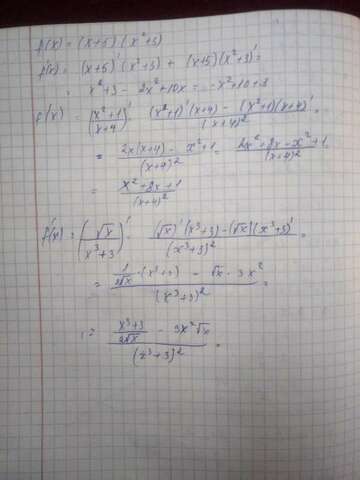 f(x) = (x+5)(x²+3)
f'(x) = (x+5)'(x²+3) + (x+5)(x²+3)' =
= x²+3 - 2x²+10x = -x²+10+3
f'(x) = ((x²+1)/(x+4))' = ((x²+1)'(x+4) - (x²+1)(x+4)')/(x+4)² =
= (2x(x+4) - x²+1)/(x+4)² = (2x²+8x-x²+1)/(x+4)²
= (x²+8x+1)/(x+4)²
f'(x) = (√x/(x³+3))' = ((√x)'(x³+3)-(√x)(x³+3)')/(x³+3)² =
= (1/(2√x)·(x³+3) - √x·3x²)/(x³+3)² =
= ((x³+3)/(2√x) - 3x²√x)/(x³+3)² .